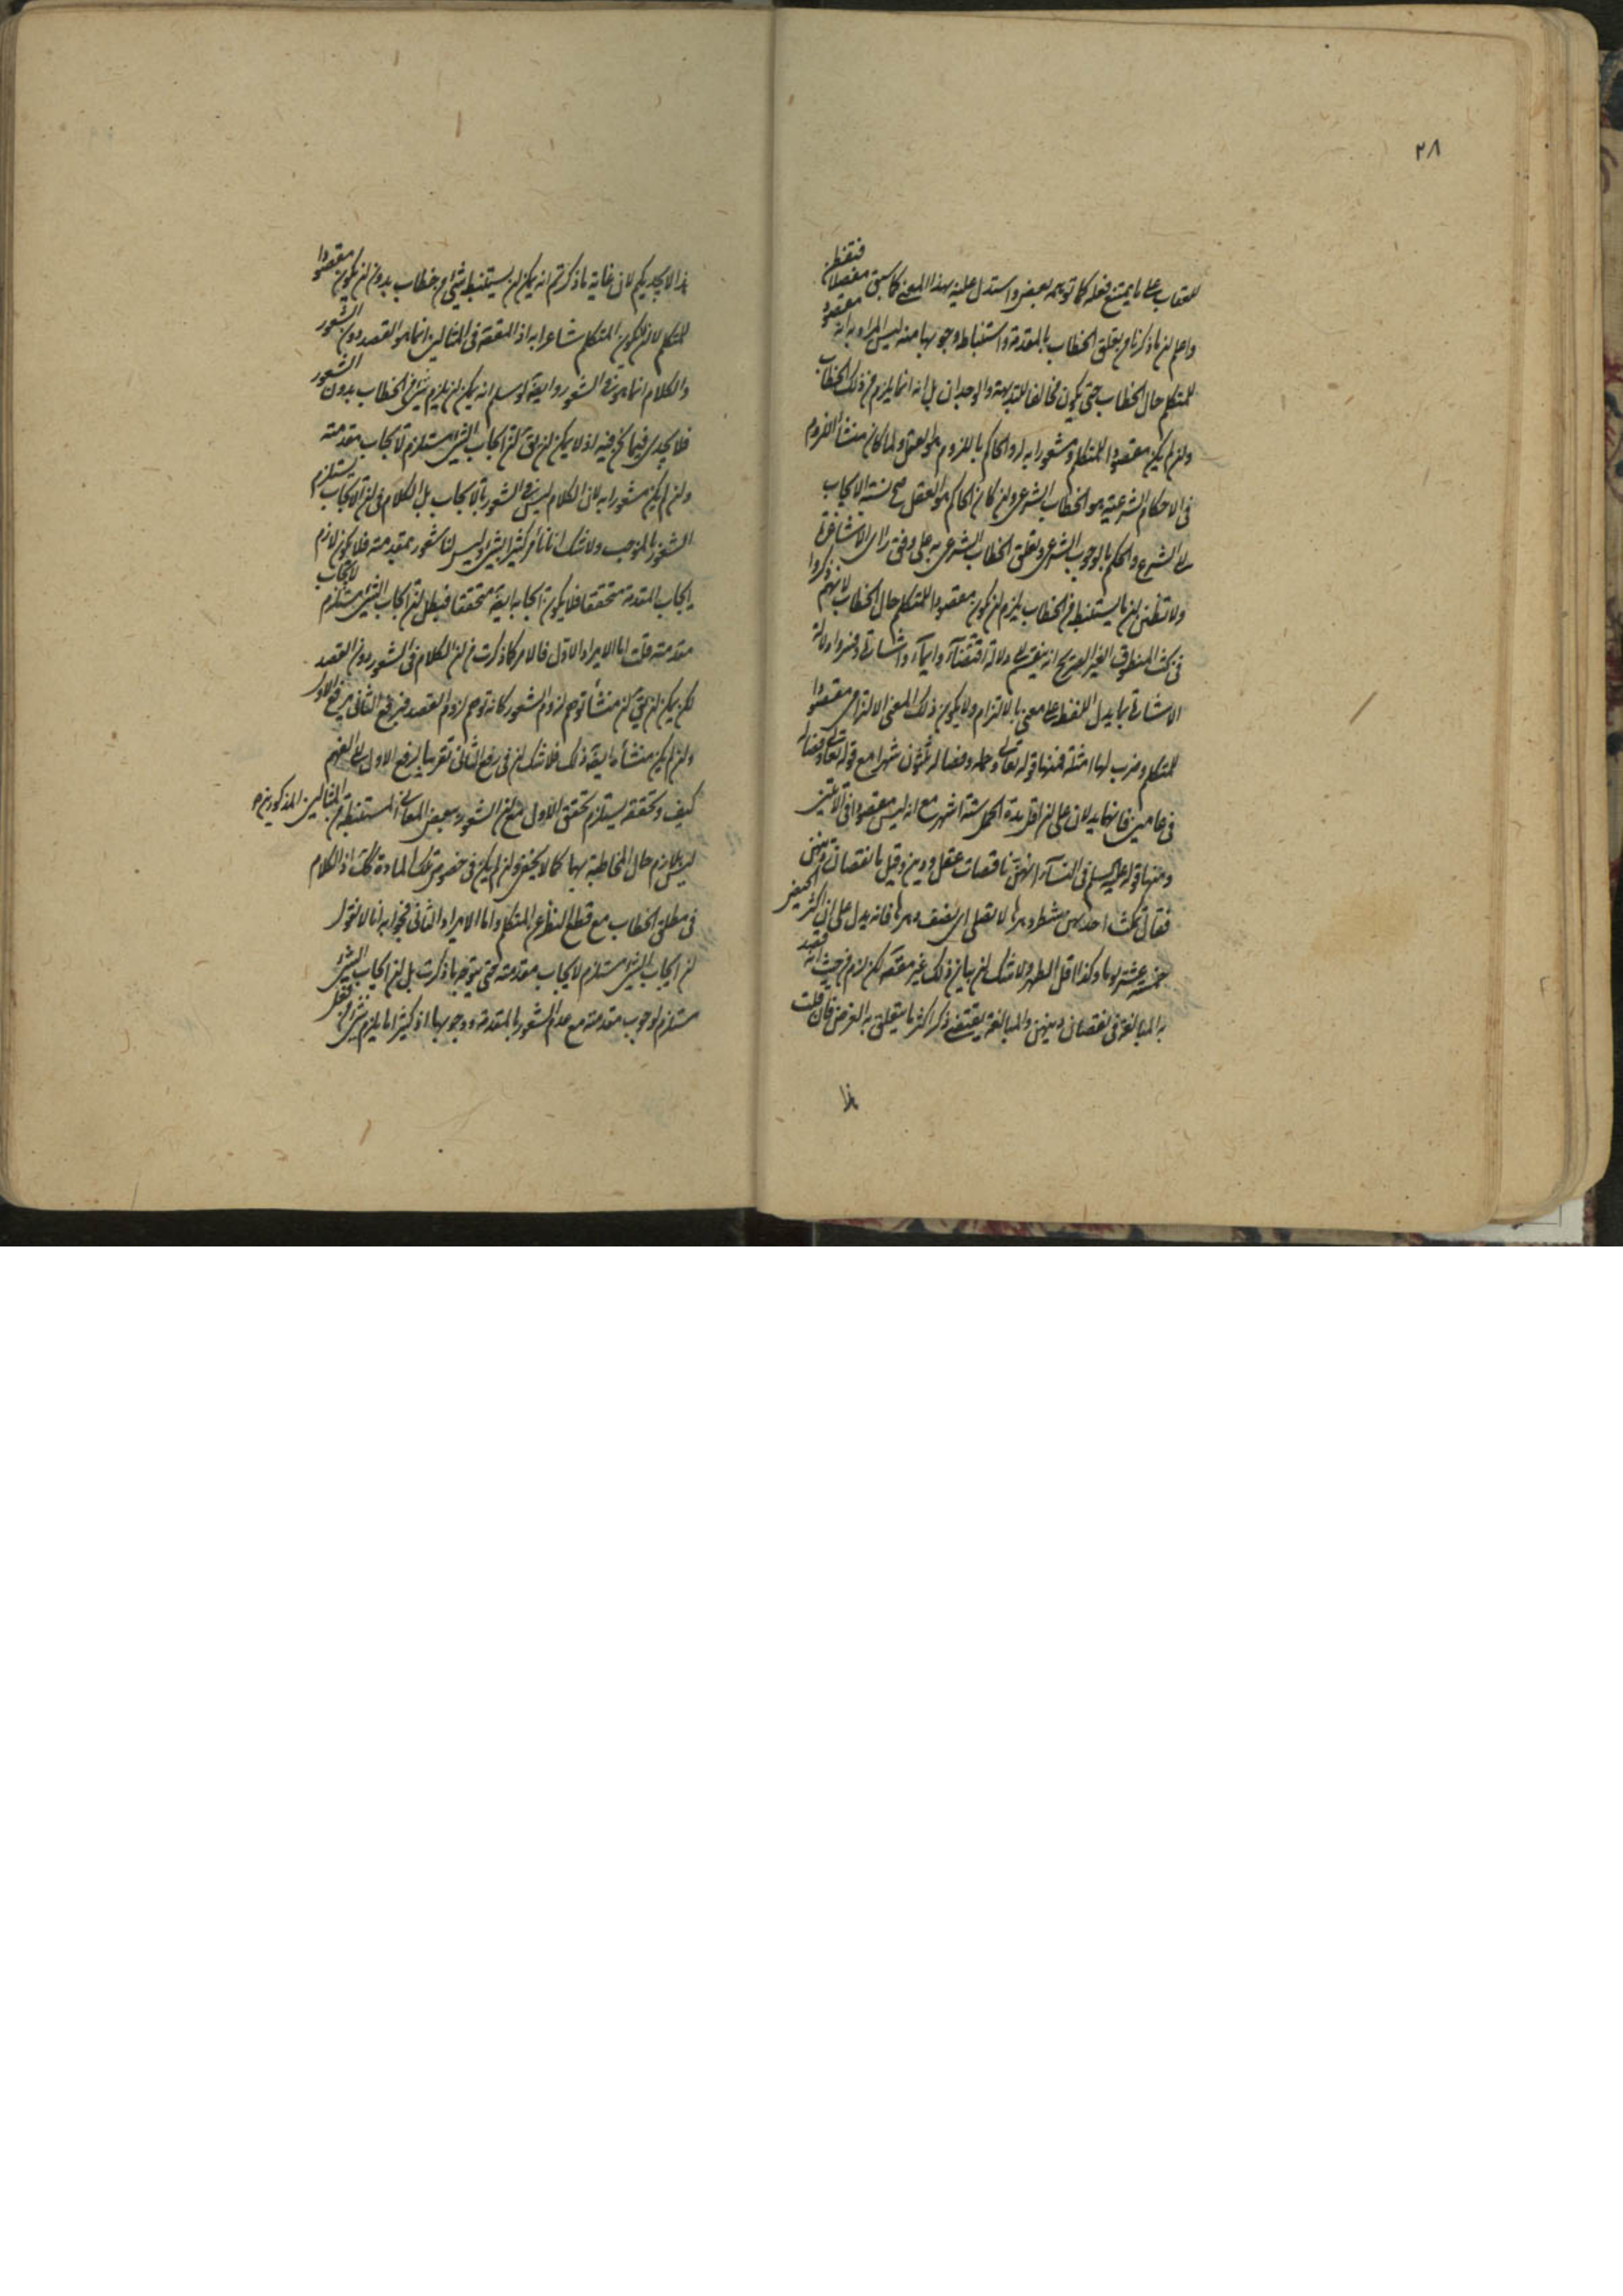 ٢٨
للعقاب على ما يمتنع فعله كما توهمه بعض واستدل عليه بهذا المعنى كما سبق مفصلا فتفطن
واعلم ان ما ذكرنا من تعلق الخطاب بالمقدمة واستنباط وجوبها منه ليس المراد به انه مقصود
للمتكلم حال الخطاب حتى يكون مخالفا للبديهة والوجدان بل انه انما يلزم من ذلك الخطاب
وان لم يكن مقصودا للمتكلم ومشعورا به له والحاكم باللزوم هو العقل ولما كان منشأ اللزوم
في الاحكام الشرعية هو الخطاب الشرعي وان كان الحاكم هو العقل صح نسبة الايجاب
الى الشرع والحكم بالوجوب الشرعي وتعلق الخطاب الشرعي به على وفق راى الاشاعرة
ولا تظنن ان ما يستنبط من الخطاب يلزم ان يكون مقصودا للمتكلم حال الخطاب لانهم ذكروا
في بحث المنطوق الغير الصريح انه ينقسم الى دلالة اقتضاء وايماء واشارة وفسروا دلالة
الاشارة بما يدل اللفظ على معنى بالالتزام ولا يكون ذلك المعنى الالتزامي مقصودا
للمتكلم وضرب لها امثلة فمنها قوله تعالى وحمله وفصاله ثلثون شهرا مع قوله تعالى وفصاله
في عامين فانهما يدلان على ان اقل مدة الحمل ستة اشهر مع انه ليس مقصودا في الآيتين
ومنها قوله عليه السلم في النساء انهن ناقصات عقل ودين وقيل ما نقصان دينهن
فقال تمكث احديهن شطر دهرها لا تصلى اى نصف دهرها فانه يدل على ان اكثر الحيض
خمسة عشر يوما وكذا اقل الطهر ولا شك ان بيان ذلك غير مقصود لكن لزم من حيث انه قصد
به المبالغة في نقصان دينهن والمبالغة يقتضى ذكر اكثر ما يتعلق به الغرض فان قلت
هذا
هذا لا يجديكم لان غاية ما ذكرتم انه يمكن ان يستنبط شيء من خطاب بدون ان يكون مقصودا
للمتكلم لا ان يكون المتكلم شاعرا به اذ المفقود في المثالين انما هو القصد دون الشعور
والكلام انما هو في الشعور وايضا لو سلم انه يمكن ان يلزم شيء من الخطاب بدون الشعور
فلا يجدى فيما نحن فيه اذ لا يمكن ان يق ان ايجاب الشيء مستلزم لايجاب مقدمته
وان لم يكن مشعورا به لان الكلام ليس في الشعور بالايجاب بل الكلام في ان الايجاب يستلزم
الشعور بالموجب ولا شك انا نأمر كثيرا بشيء وليس لنا شعور بمقدمته فلا يكون لازم
ايجاب المقدمة متحققا فلا يكون ايجابه ايضا متحققا فبطل ان ايجاب الشيء مستلزم لايجاب
مقدمته قلت اما الايراد الاول فالامر كما ذكرت من ان الكلام في الشعور دون القصد
لكن يمكن ان يق ان منشأ توهم لزوم الشعور كانه توهم لزوم القصد فبرفع الثاني يرفع الاول
وان لم يكن منشأه ايضا ذلك فلا شك ان في رفع الثاني تقريبا لرفع الاول الى الفهم
كيف وتحققه يستلزم تحقق الاول مع ان الشعور ببعض المعاني المستنبطة من المثالين المذكورين
ليس بلازم حال المخاطبة بهما كما لا يخفى وان لم يكن في خصوص تلك المادة كك اذ الكلام
في مطلق الخطاب مع قطع النظر عن المتكلم واما الايراد الثاني فجوابه انا لا نقول
ان ايجاب الشيء مستلزم لايجاب مقدمته حتى يتوجه ما ذكرت بل ان ايجاب الشيء
مستلزم لوجوب مقدمته مع عدم الشعور بالمقدمة ووجوبها اذ كثيرا ما يلزم شيء من فعل